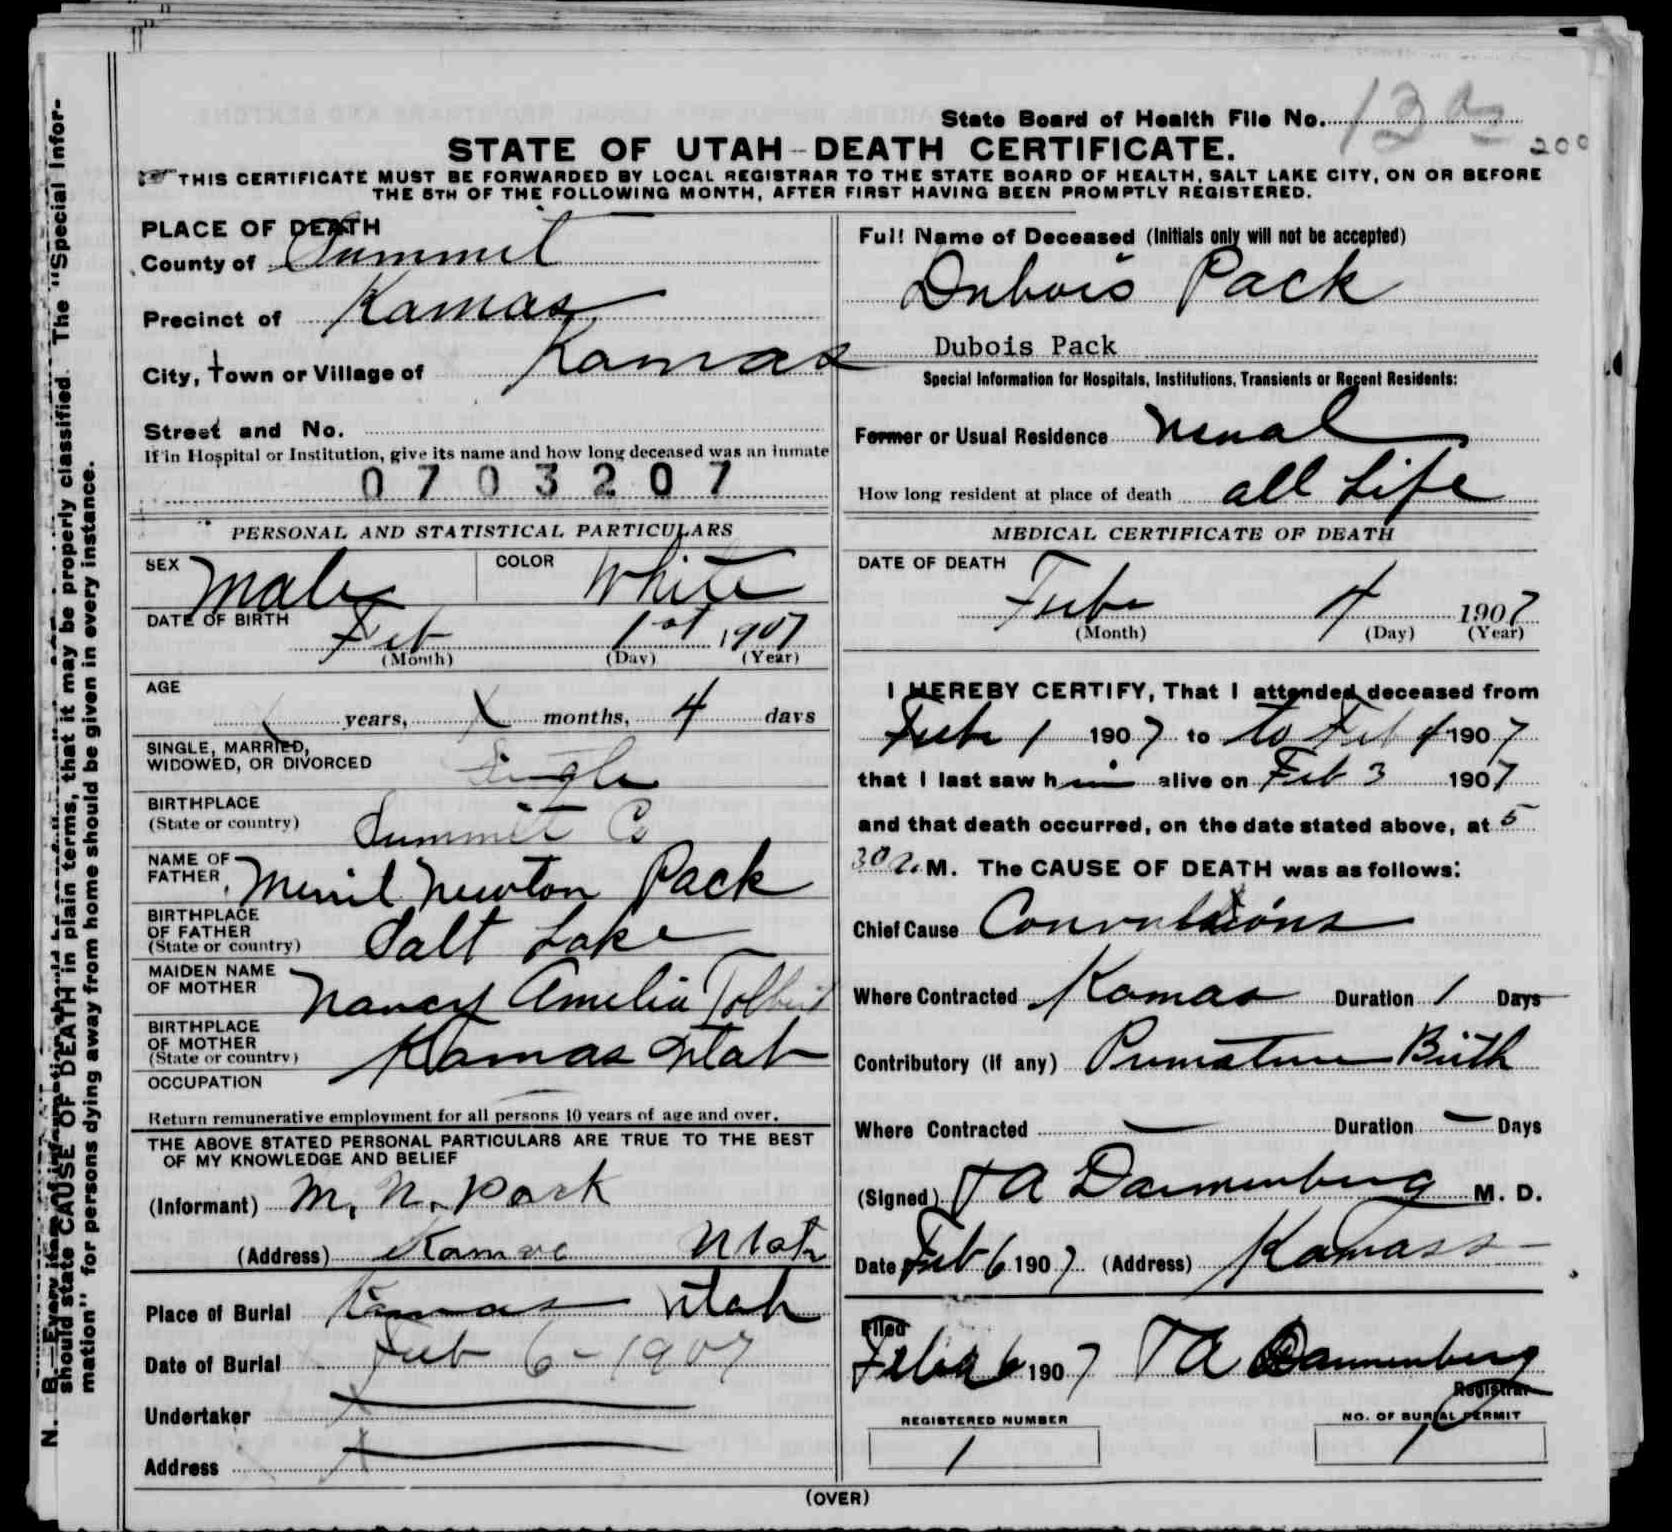 State Board of Health File No.
STATE OF UTAH-DEATH CERTIFICATE.
200
THIS CERTIFICATE MUST BE FORWARDED BY LOCAL REGISTRAR TO THE STATE BOARD OF HEALTH, SALT LAKE CITY, ON OR BEFORE
THE 5TH OF THE FOLLOWING MONTH, AFTER FIRST HAVING BEEN PROMPTLY REGISTERED.
PLACE OF DEATH
County of Summit
Precinct of Kamas
City, Town or Village of Kamas
Street and No.
If in Hospital or Institution, give its name and how long deceased was an inmate
0703207
Full Name of Deceased (Initials only will not be accepted)
Dubois Pack
Dubois Pack
Special Information for Hospitals, Institutions, Transients or Recent Residents:
Former or Usual Residence usual
How long resident at place of death all Life
PERSONAL AND STATISTICAL PARTICULARS
SEX Male COLOR White
DATE OF BIRTH Feb 1st 1907
(Month) (Day) (Year)
AGE
years, months, 4 days
SINGLE, MARRIED,
WIDOWED, OR DIVORCED Single
BIRTHPLACE
(State or country) Summit Co
NAME OF
FATHER Merril Newton Pack
BIRTHPLACE
OF FATHER
(State or country) Salt Lake
MAIDEN NAME
OF MOTHER Nancy Amelia
BIRTHPLACE
OF MOTHER
(State or country) Kamas Utah
OCCUPATION
Return remunerative employment for all persons 10 years of age and over.
THE ABOVE STATED PERSONAL PARTICULARS ARE TRUE TO THE BEST
OF MY KNOWLEDGE AND BELIEF
(Informant) M. N. Pack
(Address) Kamas Utah
Place of Burial Kamas Utah
Date of Burial Feb 6-1907
Undertaker
Address
MEDICAL CERTIFICATE OF DEATH
DATE OF DEATH
Feb 4 1907
(Month) (Day) (Year)
I HEREBY CERTIFY, That I attended deceased from
Feb 1 1907 to to Feb 4 1907
that I last saw him alive on Feb 3 1907
and that death occurred, on the date stated above, at 5
30 a. M. The CAUSE OF DEATH was as follows:
Chief Cause Convulsions
Where Contracted Kamas Duration 1 Days
Contributory (if any) Premature Birth
Where Contracted Duration Days
(Signed) T A Dannenberg M. D.
Date Feb 6 1907 (Address) Kamass
Filed
Feb 6 1907 T A Dannenberg
Registrar
REGISTERED NUMBER
1
NO. OF BURIAL PERMIT
1
(OVER)
N. B.—Every item of information should
should state CAUSE OF DEATH in plain terms, that it may be properly classified. The "Special Infor-
mation" for persons dying away from home should be given in every instance.